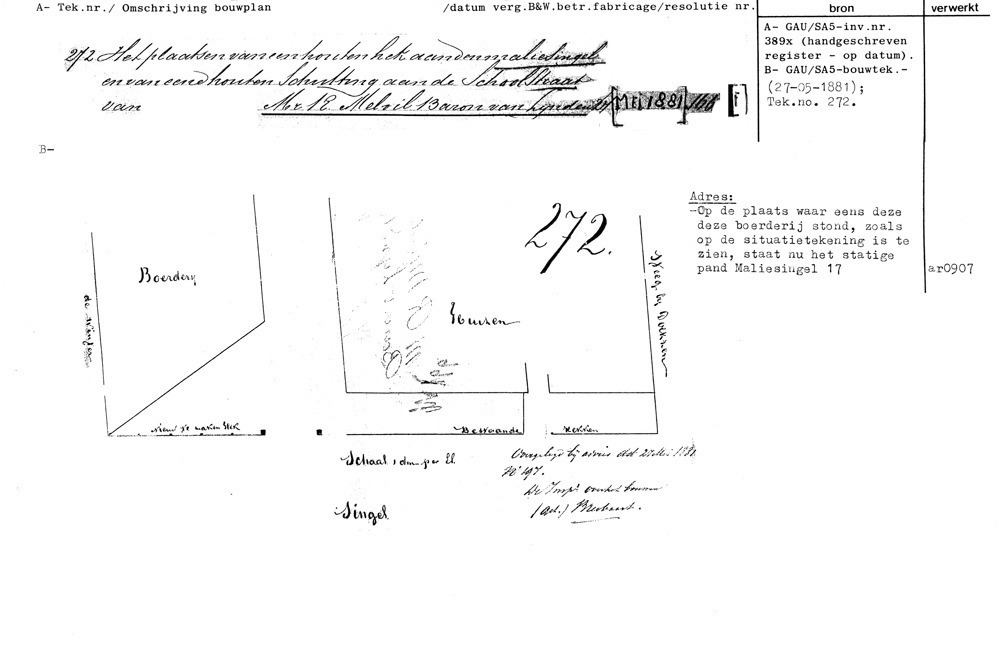 A- Tek.nr./ Omschrijving bouwplan /datum verg.B&W.betr.fabricage/resolutie nr. bron verwerkt
272 Het plaatsen van een houten hek aan den maliesingel
en van eend houten Schutting aan de Schoolstraat
van Mr R. Melvil Baron van Lynden 27 [Mei 1881] 166 [F]
A- GAU/SA5-inv.nr.
389x (handgeschreven
register - op datum).
B- GAU/SA5-bouwtek.-
(27-05-1881);
Tek.no. 272.
B-
272.
Adres:
-Op de plaats waar eens deze
deze boerderij stond, zoals
op de situatietekening is te
zien, staat nu het statige
pand Maliesingel 17
ar0907
Boerdery
Huizen
de
Steeg by
Nieuw te maken Hek
Bestaande
Hekken
Schaal 1 dm. per El.
Singel
Overgelegd bij advies dd 21 Mei 1881
No 197.
De Insp.
(Get.)